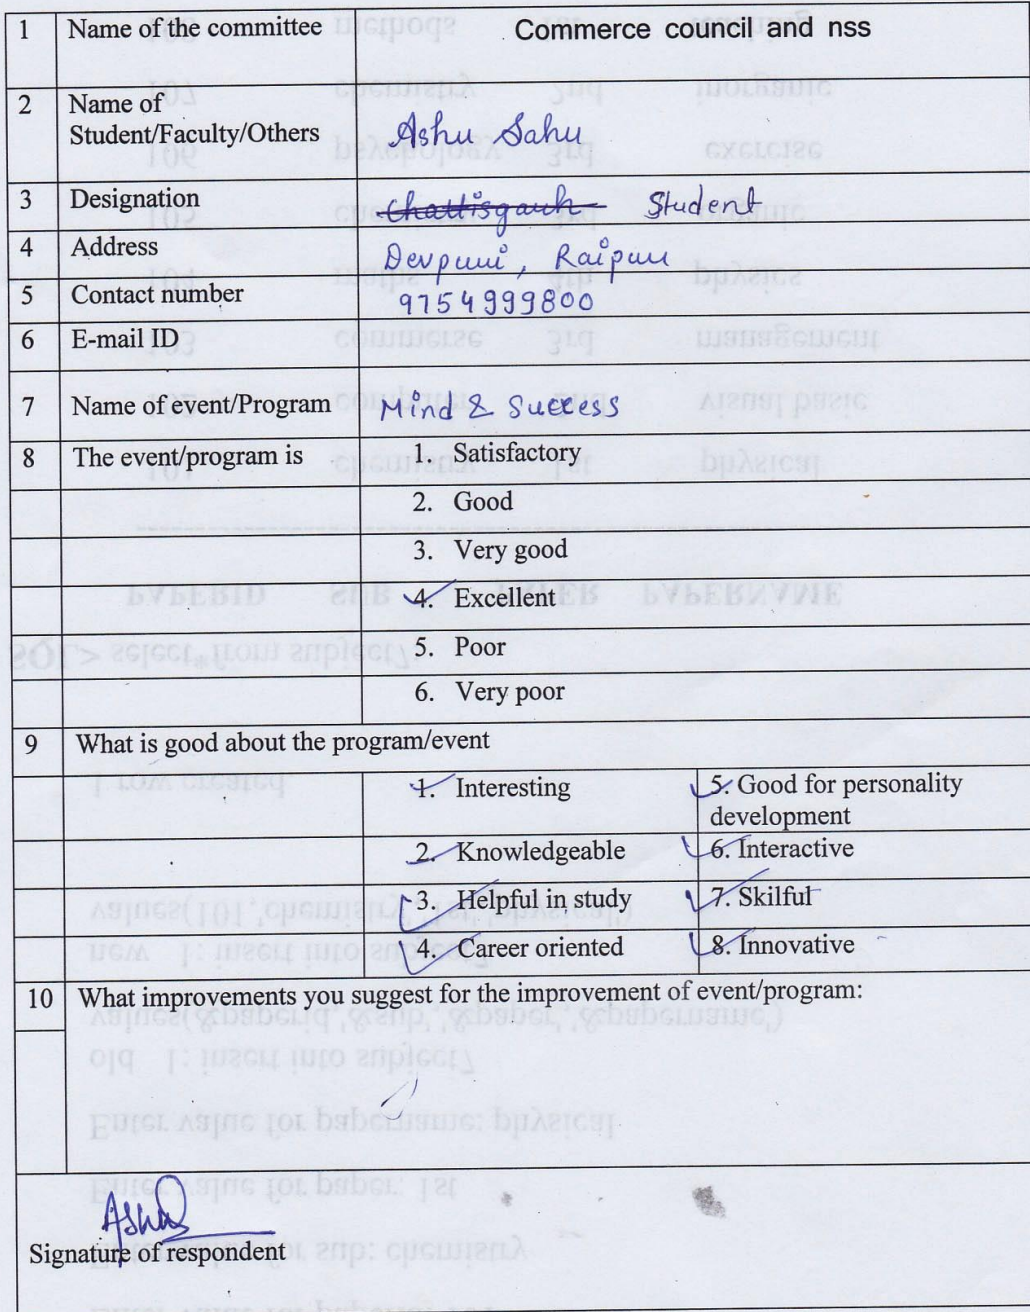 1 Name of the committee Commerce council and nss
2 Name of
Student/Faculty/Others Ashu Sahu
3 Designation Chattisgarh Student
4 Address Devpuri, Raipur
5 Contact number 9754999800
6 E-mail ID
7 Name of event/Program Mind & Success
8 The event/program is 1. Satisfactory
2. Good
3. Very good
4. Excellent
5. Poor
6. Very poor
9 What is good about the program/event
1. Interesting 5. Good for personality
development
2. Knowledgeable 6. Interactive
3. Helpful in study 7. Skilful
4. Career oriented 8. Innovative
10 What improvements you suggest for the improvement of event/program:
Signature of respondent